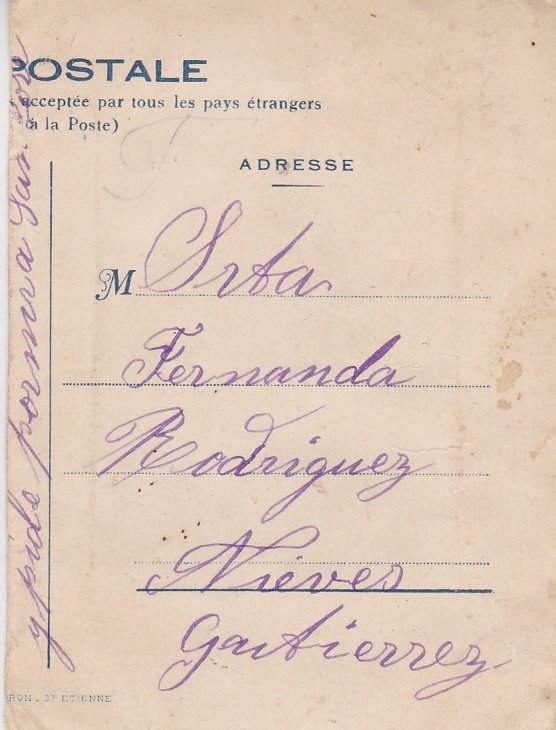 POSTALE
acceptée par tous les pays étrangers
à la Poste)
ADRESSE
M Srta
Fernanda
Rodriguez
Nieves
Gutierrez
y pide por mi a San José
RON - ST ETIENNE